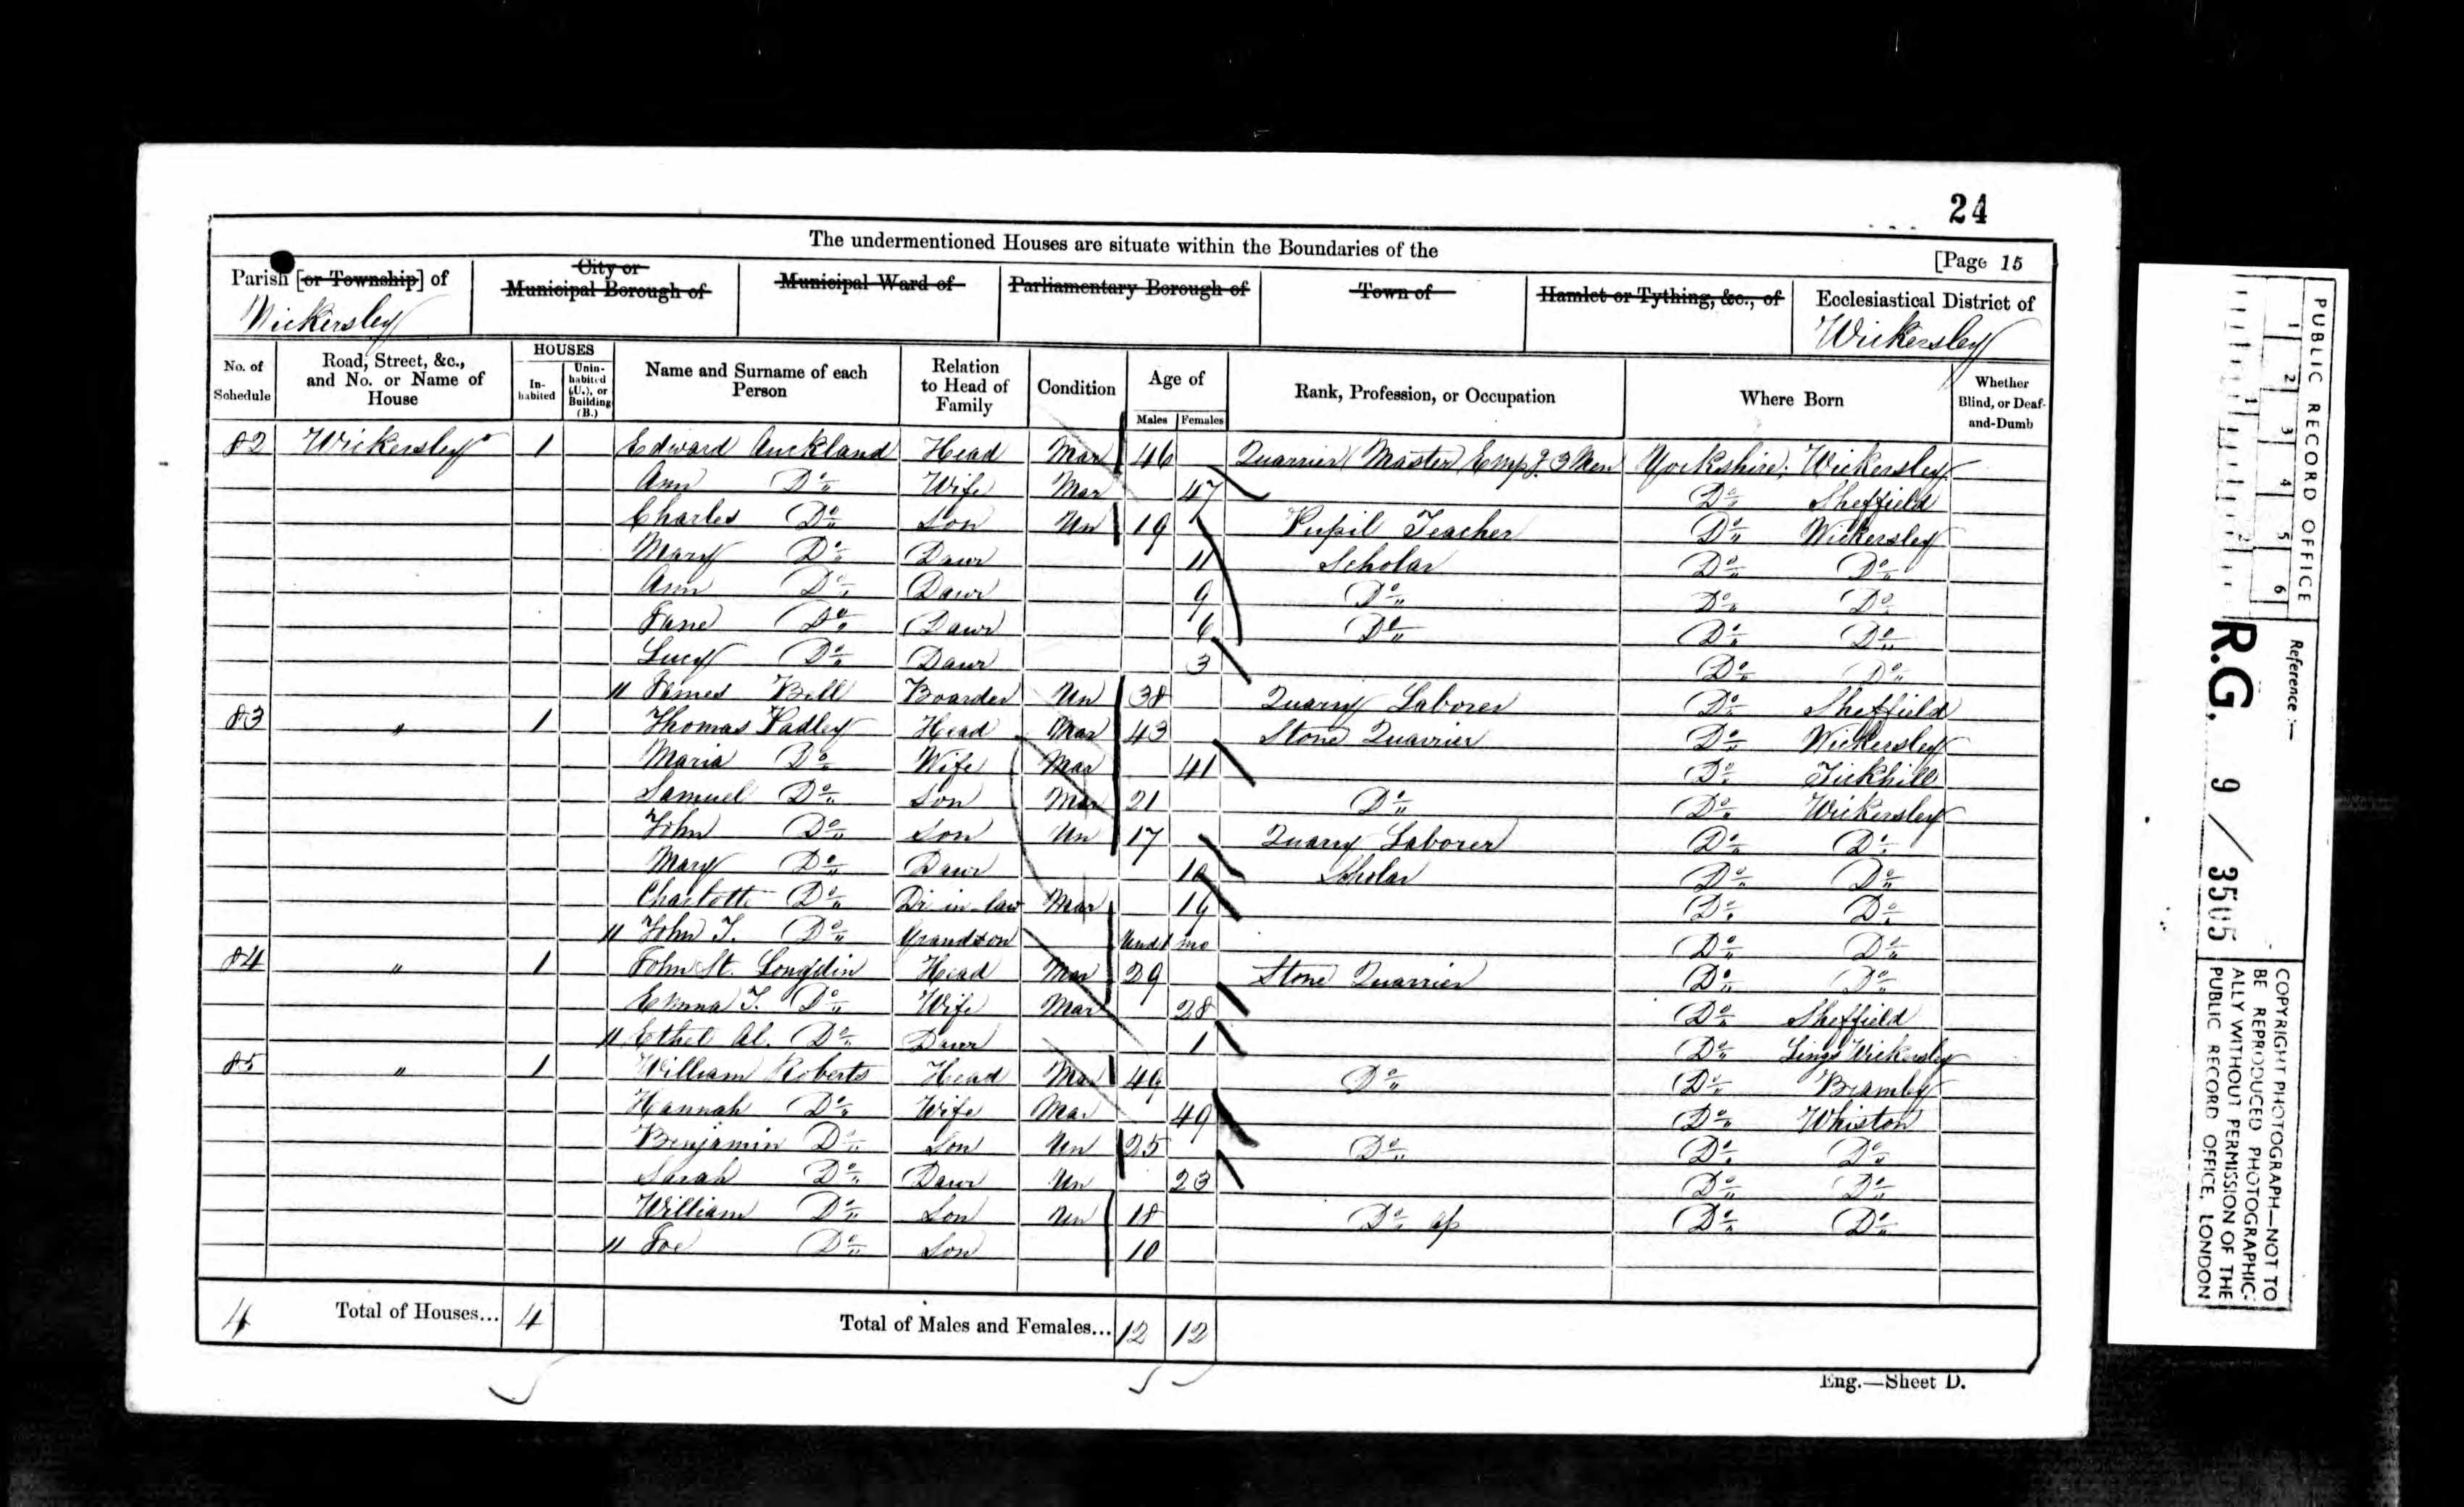 24
The undermentioned Houses are situate within the Boundaries of the
[Page 15
Parish [or Township] of
Wickersley
City or
Municipal Borough of
Municipal Ward of
Parliamentary Borough of
Town of
Hamlet or Tything, &c., of
Ecclesiastical District of
Wickersley
No. of Schedule
Road, Street, &c., and No. or Name of House
HOUSES
In-habited
Unin-habited (U.), or Building (B.)
Name and Surname of each Person
Relation to Head of Family
Condition
Age of
Males Females
Rank, Profession, or Occupation
Where Born
Whether Blind, or Deaf-and-Dumb
82 Wickersley 1 Edward Auckland Head Mar 46 Quarrier (Master) Empg. 3 Men Yorkshire, Wickersley
Ann Do Wife Mar 47 Do Sheffield
Charles Do Son Un 19 Pupil Teacher Do Wickersley
Mary Do Daur 11 Scholar Do Do
Ann Do Daur 9 Do Do Do
Jane Do Daur 6 Do Do Do
Lucy Do Daur 3 Do Do
" James Bell Boarder Un 38 Quarry Laborer Do Sheffield
83 " 1 Thomas Padley Head Mar 43 Stone Quarrier Do Wickersley
Maria Do Wife Mar 41 Do Tickhill
Samuel Do Son Mar 21 Do Do Wickersley
John Do Son Un 17 Quarry Laborer Do Do
Mary Do Daur 10 Scholar Do Do
Charlotte Do Dr-in-law Mar 19 Do Do
" John T. Do Grandson mo Do Do
84 " 1 John Longdin Head Mar 29 Stone Quarrier Do Do
Emma Do Wife Mar 28 Do Sheffield
" Ethel Do Daur 1 Do Lings Wickersley
85 " 1 William Roberts Head Mar 49 Do Do Bramley
Hannah Do Wife Mar 49 Do Whiston
Benjamin Do Son Un 25 Do Do Do
Sarah Do Daur Un 23 Do Do
William Do Son Un 18 Do ap Do Do
" Joe Do Son 10
4 Total of Houses... 4 Total of Males and Females... 12 12
Eng.—Sheet D.
PUBLIC RECORD OFFICE
1 2 3 4 5 6
1 2
Reference :—
R.G. 9 / 3505
COPYRIGHT PHOTOGRAPH—NOT TO
BE REPRODUCED PHOTOGRAPHIC-
ALLY WITHOUT PERMISSION OF THE
PUBLIC RECORD OFFICE, LONDON